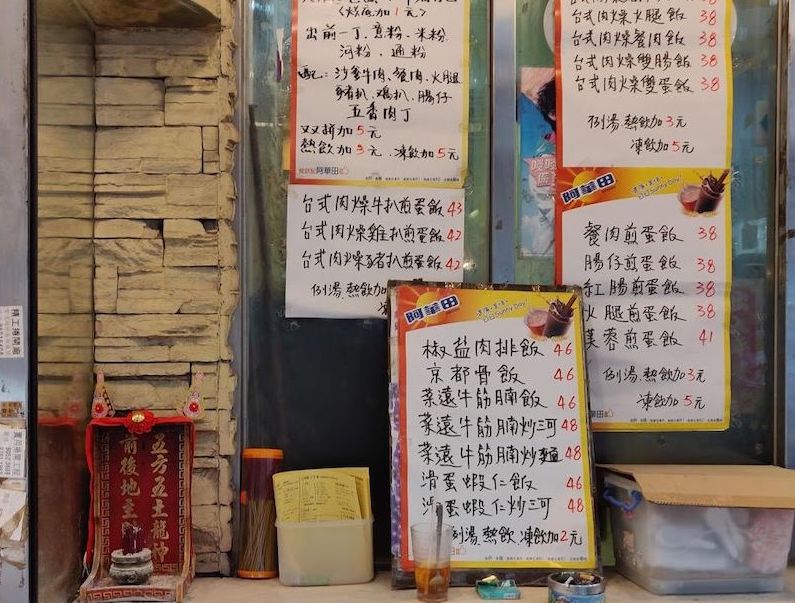 (炒底加1元)
出前一丁、意粉、米粉
河粉、通粉
配：沙爹牛肉、餐肉、火腿
豬扒、鷄扒、腸仔
五香肉丁
双拼加5元
熱飲加3元、凍飲加5元
阿華田
台式肉燥牛扒煎蛋飯 43
台式肉燥雞扒煎蛋飯 42
台式肉燥豬扒煎蛋飯 42
例湯、熱飲加
台式肉燥火腿飯 38
台式肉燥餐肉飯 38
台式肉燥雙腸飯 38
台式肉燥雙蛋飯 38
例湯熱飲加3元
凍飲加5元
阿華田
D D Sunny Day!
餐肉煎蛋飯 38
腸仔煎蛋飯 38
紅腸煎蛋飯 38
火腿煎蛋飯 38
芙蓉煎蛋飯 41
例湯、熱飲加3元
凍飲加5元
阿華田
D D Sunny Day!
椒盐肉排飯 46
京都骨飯 46
菜遠牛筋腩飯 46
菜遠牛筋腩炒河 48
菜遠牛筋腩炒麵 48
滑蛋蝦仁飯 46
滑蛋蝦仁炒河 48
例湯、熱飲、凍飲加2元
五方五土龍神
前後地主